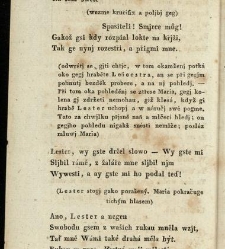 (wezme krucifix a políbj geg)
Spasiteli! Smjere můg!
Gakož gsi kdy rozpial lokte na křjži,
Tak ge nynj rozestři, a přigmi mne.
(odwrátj se, gjti chtjc, w tom okamženj potká
oko gegj hraběte Leicestra, an se při gegjm
pohnutj bezděk probeře, a na ni pohledj. —
Při tom oka pohledênj se třtese Maria, gegj ko-
lena gj zdržeti nemohau, giž klesá, w tom
gj hrabě Lester uchopj, a w náručj swé při-
gme. Ona na chwjli pilně naň a mlčecj hledj; on
gegjho pohledu nigakž snésti nemůže; posléz
mluwj Maria)
Lester, wy gste držel slowo — Wy gste mi
Sljbil rámě, z žaláře mne sljbil njm
Wywesti, a ny gste mi ho podal teď!
(Lester stogj gako poražený. Maria pokračuge
tichým hlasem)
Ano, Lester a negen
Swobodu gsem z wašich rukau měla wzjt,
Tuť mně Wámi také drahá měla být.